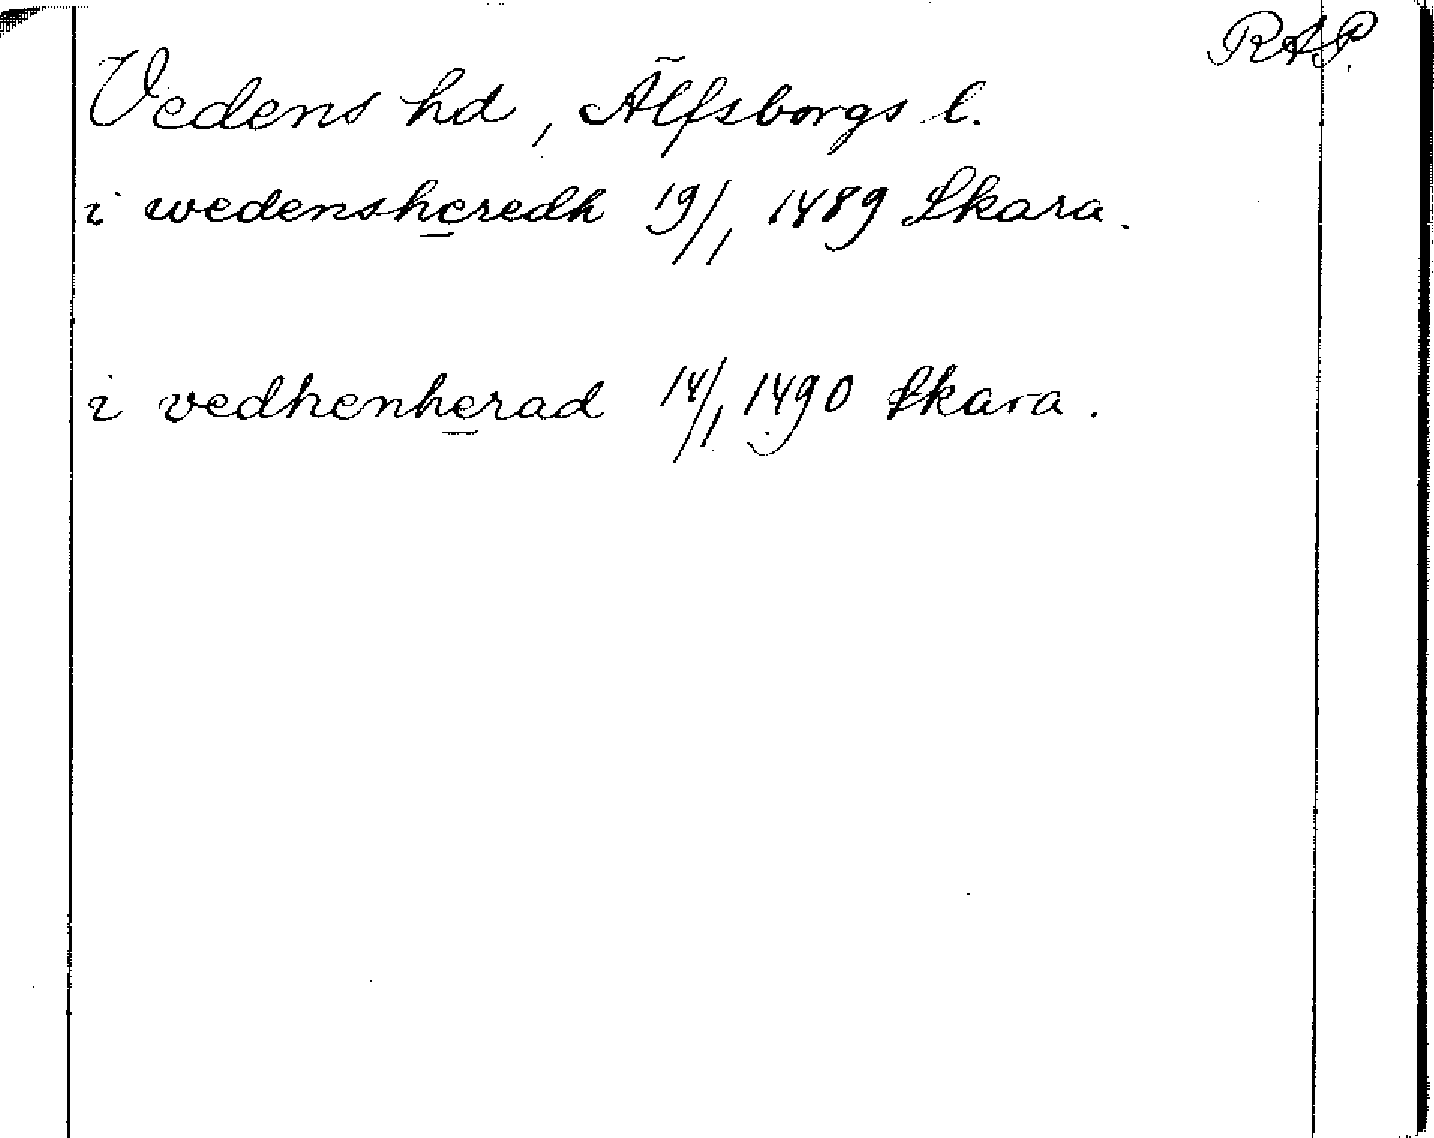 RAP.
Vedens hd, Älfsborgs l.
i wedensheredh 19/1 1489 Skara.
i vedhenherad 14/1 1490 Skara.